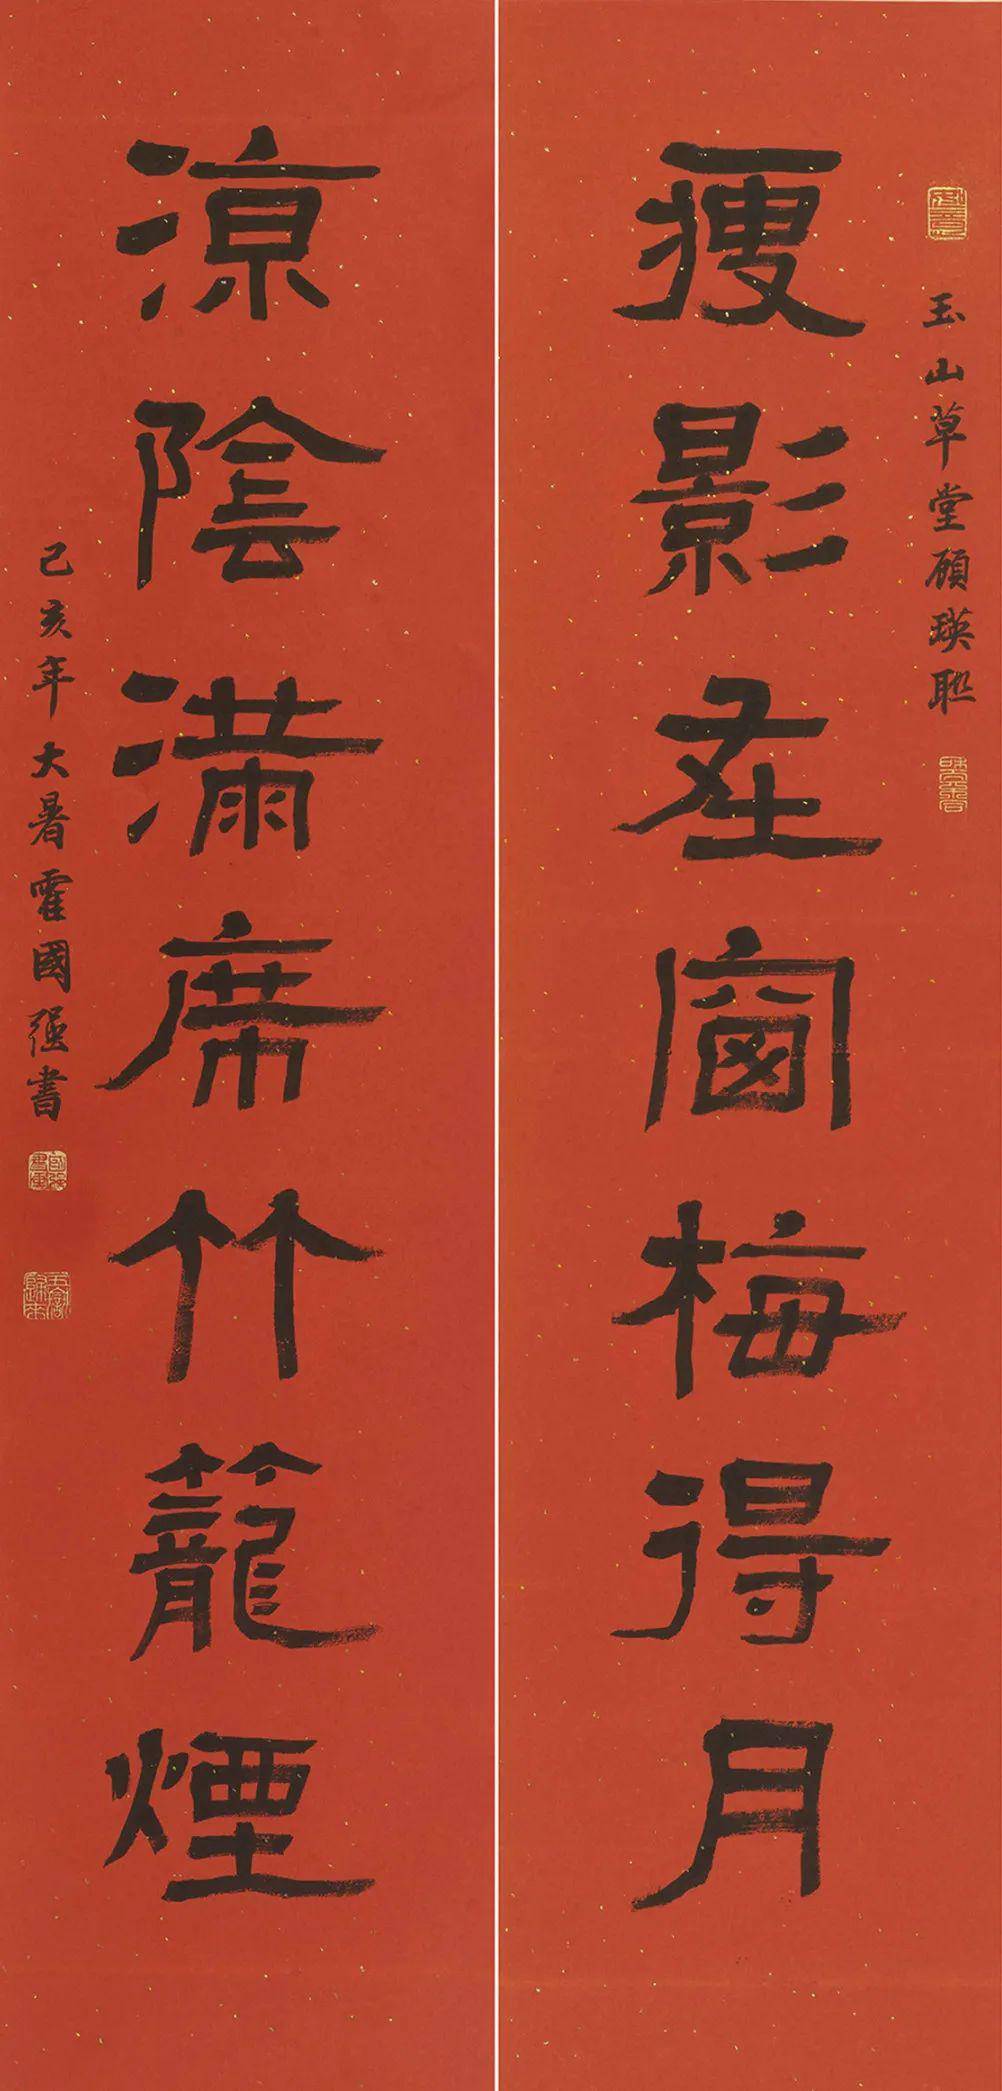 玉山草堂顧瑛聯
瘦影在窗梅得月
涼陰滿席竹籠煙
己亥年大暑霍國强書